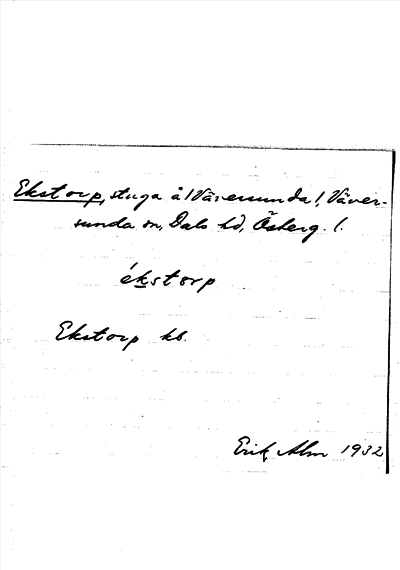 Ekstorp, stuga å Väversunda l, Väver-
sunda sn, Dals hd, Österg. l.
ékstorp
Ekstorp kb.
Erik Alm 1932